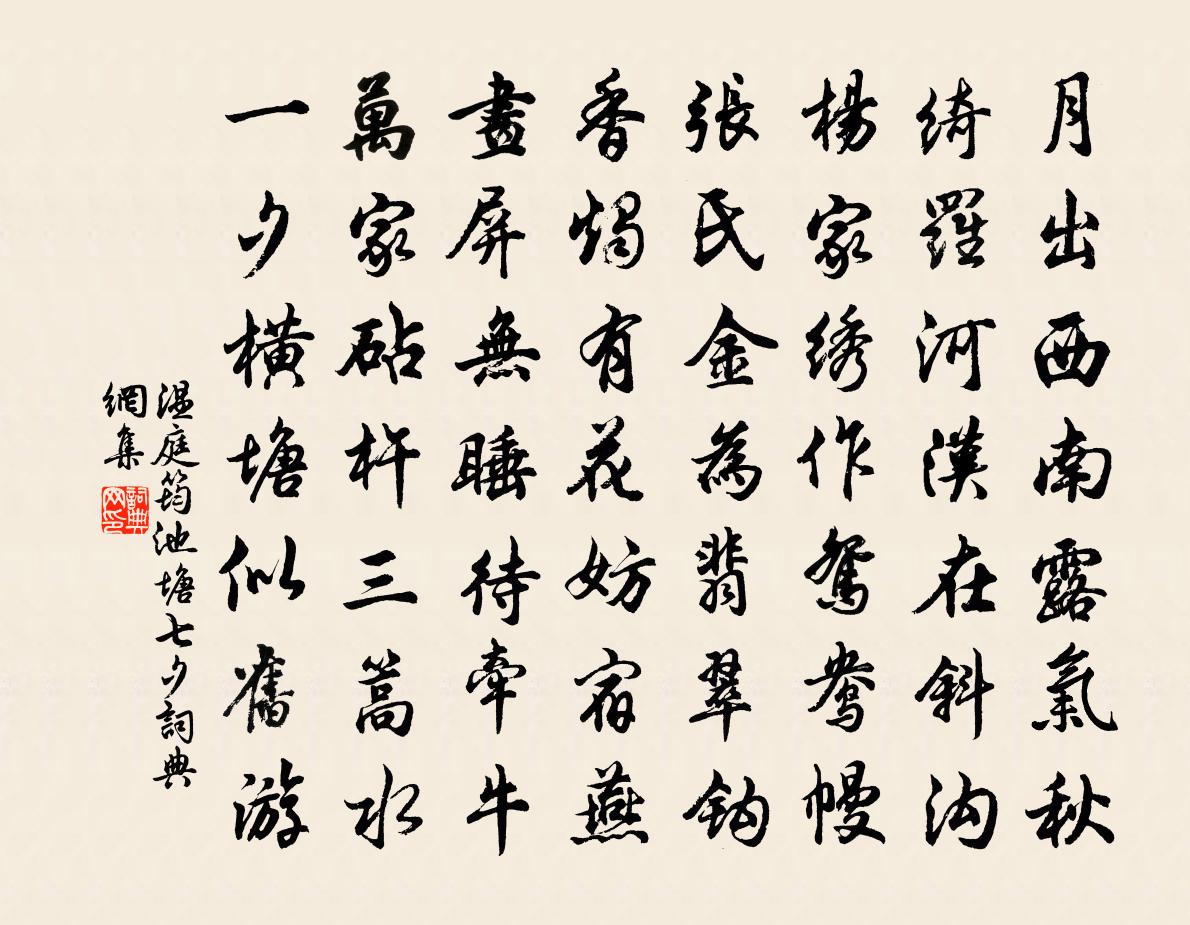 月出西南露氣秋
綺羅河漢在斜沟
楊家绣作鴛鴦幔
張氏金為翡翠鈎
香燭有花妨宿燕
畫屏無睡待牽牛
萬家砧杵三篙水
一夕橫塘似舊游
温庭筠池塘七夕詞典
網集
詞典网印